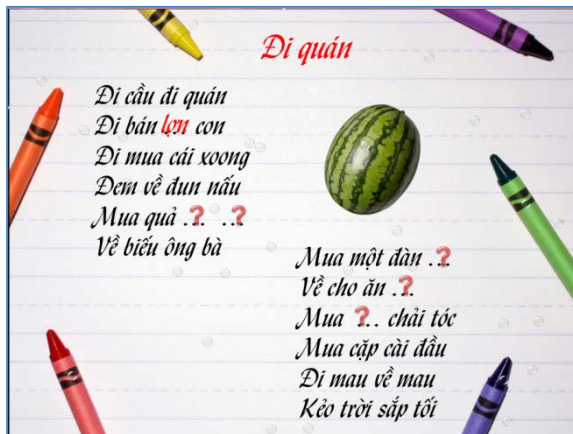 Đi quán
Đi cầu đi quán
Đi bán lợn con
Đi mua cái xoong
Đem về đun nấu
Mua quả ..? ..?
Về biếu ông bà
Mua một đàn ..?
Về cho ăn ..?
Mua ?.. chải tóc
Mua cặp cài đầu
Đi mau về mau
Kẻo trời sắp tối